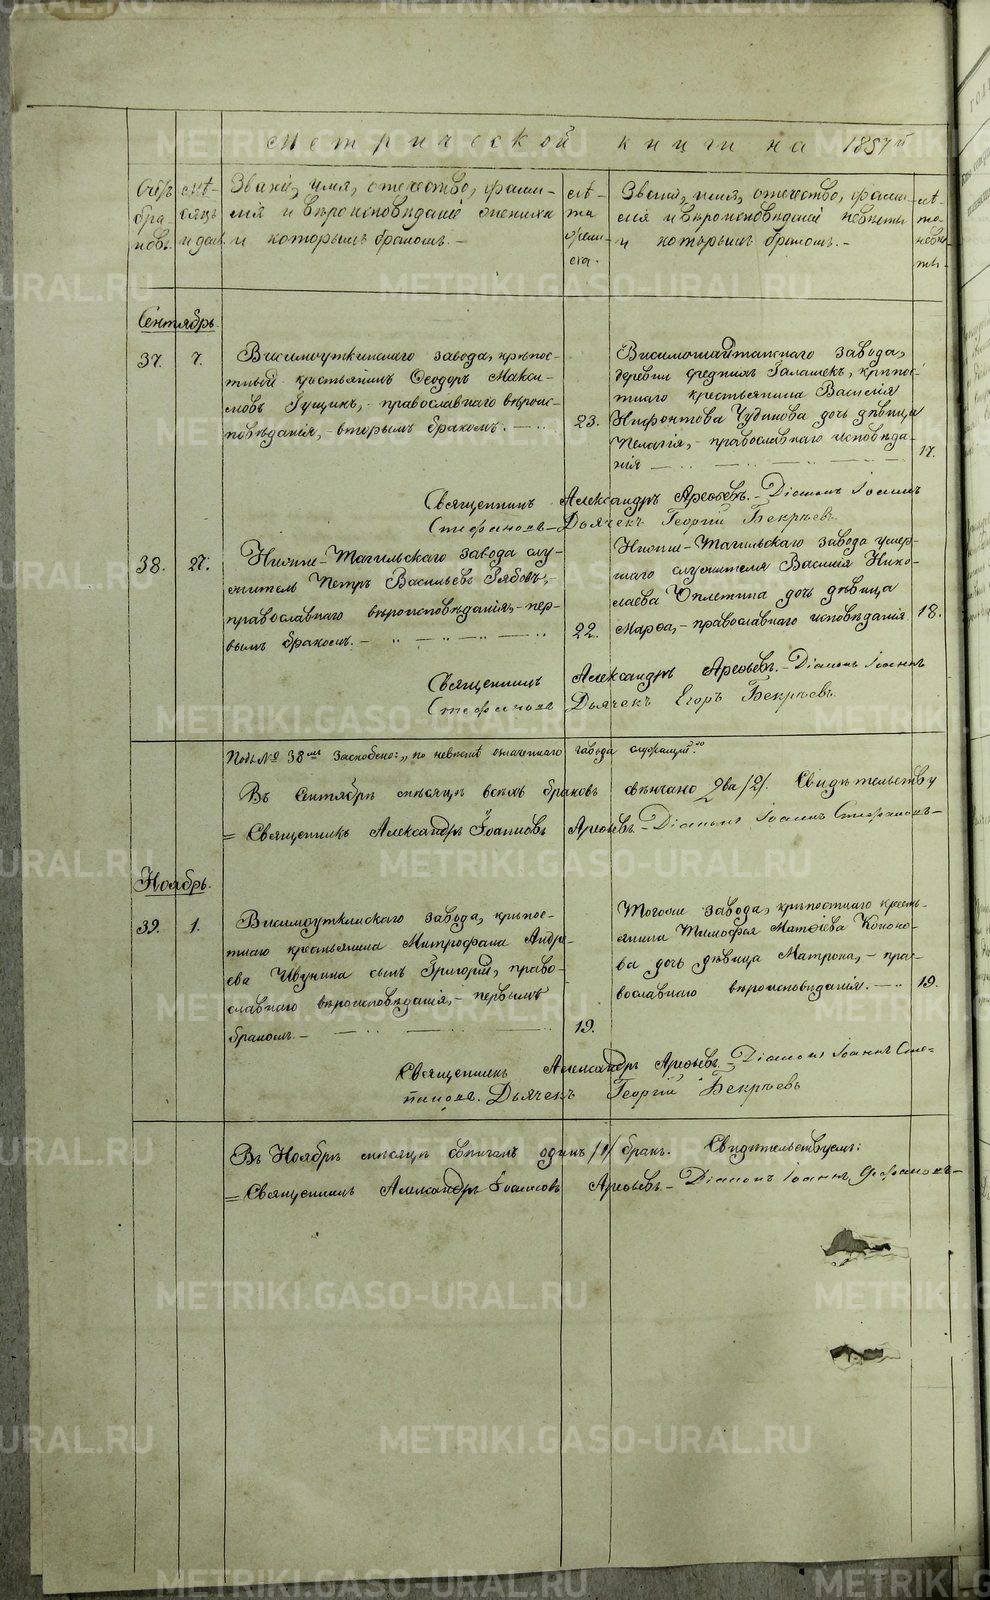 Метрической книги на 1857й
Счетъ браковъ.
Мѣсяцъ и день
Званіе, имя, отечество, фами-
лія и вѣроисповѣданіе жениха
и которымъ бракомъ.-
Лѣта жениха.
Званіе, имя, отечество, фами-
лія и вѣроисповѣданіе невѣсты
и которымъ бракомъ.-
Лѣта невѣсты.
Сентябрь
37. 7. Висимоуткинскаго завода, крѣпос-
тный крестьянинъ Ѳеодоръ Макси-
мовъ Гущинъ,- православнаго вѣроис-
повѣданія,- вторымъ бракомъ.-
23.
Висимошайтанскаго завода,
деревни среднихъ Галашекъ, крѣпос-
тнаго крестьянина Василія
Нифонтова Чудинова дочь дѣвица
Пелагія,- православнаго исповѣда-
нія
17.
Священникъ Александръ Арефьевъ.- Діаконъ Іоаннъ
Стефановъ- Дьячекъ Георгій Бекрѣевъ.
38. 27. Нижне-Тагильскаго завода слу-
житель Петръ Васильевъ Рябовъ,-
православнаго вѣроисповѣданія,- пер-
вымъ бракомъ.-
22.
Нижне-Тагильскаго завода умер-
шаго служителя Василія Нико-
лаева Оплетина дочь дѣвица
Марѳа,- православнаго исповѣданія
18.
Священникъ Александръ Арефьевъ.- Діаконъ Іоаннъ
Стефановъ Дьячекъ Егоръ Бекрѣевъ.
Подъ № 38мъ заскоблено: „по невѣстѣ означеннаго завода
Въ Сентябрѣ мѣсяцѣ всѣхъ браковъ вѣнчано два /2/. Свидѣтельству
= Священникъ Александръ Іоанновъ Арефьевъ- Діаконъ Іоаннъ Стефановъ-
Ноябрь.
39. 1. Висимоуткинскаго завода, крѣпос-
тнаго крестьянина Митрофана Андре-
ева Ивунина сынъ Григорій, право-
славнаго вѣроисповѣданія,- первымъ
бракомъ.-
19.
Тогоже завода, крѣпостнаго кресть-
янина Тимофея Матѳіева Каконо-
ва дочь дѣвица Матрона,- пра-
вославнаго вѣроисповѣданія.-
19.
Священникъ Александръ Арефьевъ.- Діаконъ Іоаннъ Сте-
пановъ. Дьячекъ Георгій Бекрѣевъ
Въ Ноябрѣ мѣсяцѣ вѣнчанъ одинъ /1/ бракъ. Свидѣтельствуемъ:
= Священникъ Александръ Іоанновъ Арефьевъ- Діаконъ Іоаннъ Стефановъ-
METRIKI.GASO-URAL.RU